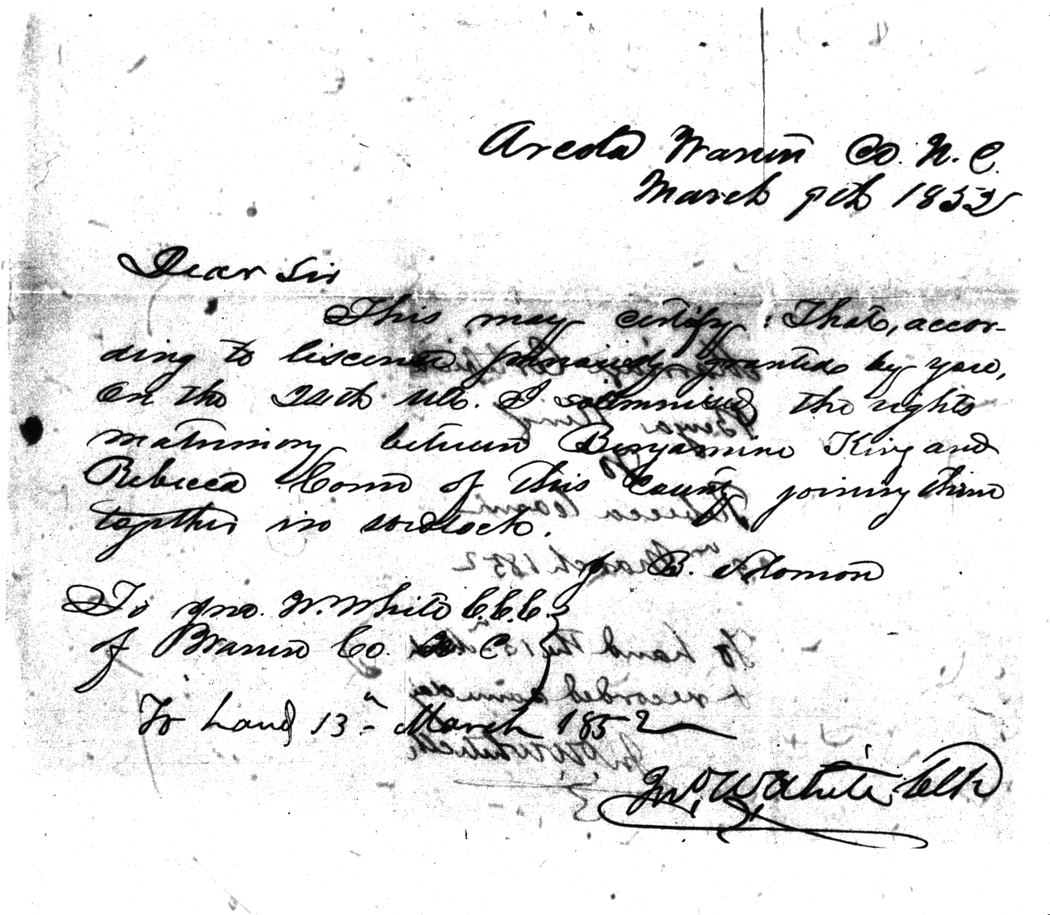 Areola Warren Co. N. C.
March 9th 1852
Dear Sir
This may certify, That, accor-
ding to liscence previously granted by you,
On the 24th ult. I solemnized the rights
matrimony between Benjamine King and
Rebecca Conn of this County joining them
together in wedlock.
J. B. Solomon
To Jno. W. White C.C.C.
of Warren Co. N. C.
To hand 13th March 1852
Jno. W. White Clk